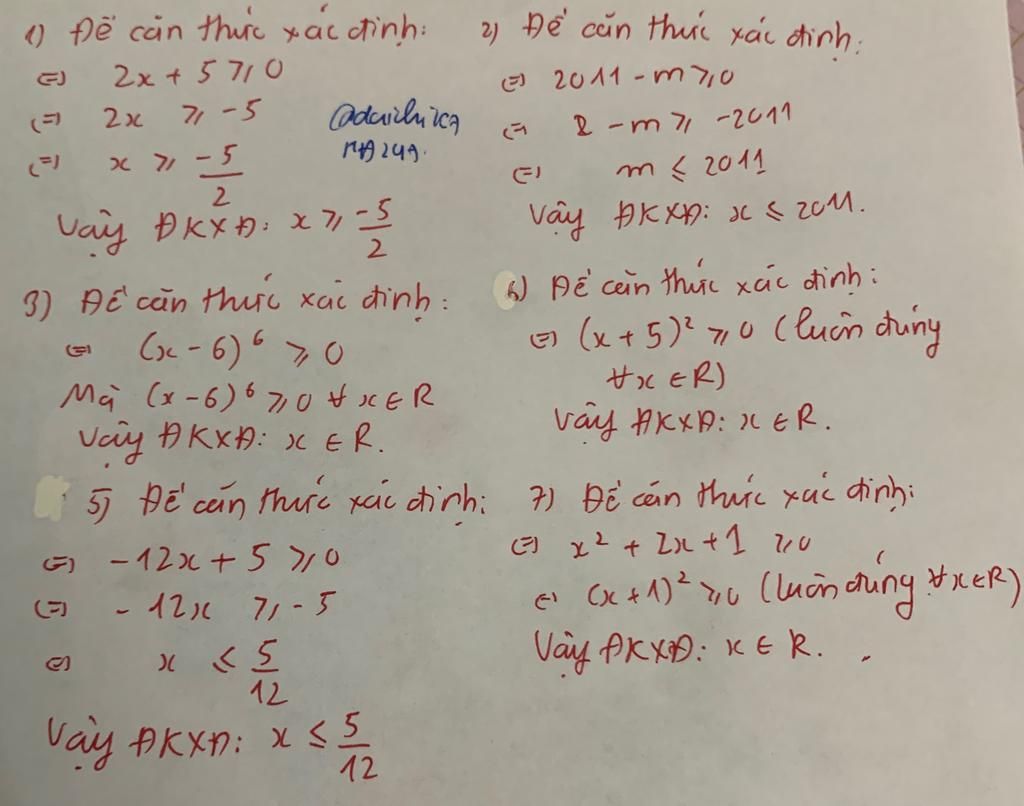 1) Để căn thức xác định:
⇔ 2x + 5 ⩾ 0
⇔ 2x ⩾ -5
⇔ x ⩾ -5/2
Vậy ĐKXĐ: x ⩾ -5/2
2) Để căn thức xác định:
⇔ 2011 - m ⩾ 0
⇔ - m ⩾ -2011
⇔ m ⩽ 2011
Vậy ĐKXĐ: x ⩽ 2011.
3) Để căn thức xác định:
⇔ (x - 6)⁶ ⩾ 0
Mà (x - 6)⁶ ⩾ 0 ∀ x ∈ R
Vậy ĐKXĐ: x ∈ R.
6) Để căn thức xác định:
⇔ (x + 5)² ⩾ 0 (luôn đúng
∀x ∈ R)
Vậy ĐKXĐ: x ∈ R.
5) Để căn thức xác định:
⇔ -12x + 5 ⩾ 0
⇔ -12x ⩾ -5
⇔ x ⩽ 5/12
Vậy ĐKXĐ: x ⩽ 5/12
7) Để căn thức xác định:
⇔ x² + 2x + 1 ⩾ 0
⇔ (x + 1)² ⩾ 0 (luôn đúng ∀x ∈ R)
Vậy ĐKXĐ: x ∈ R.